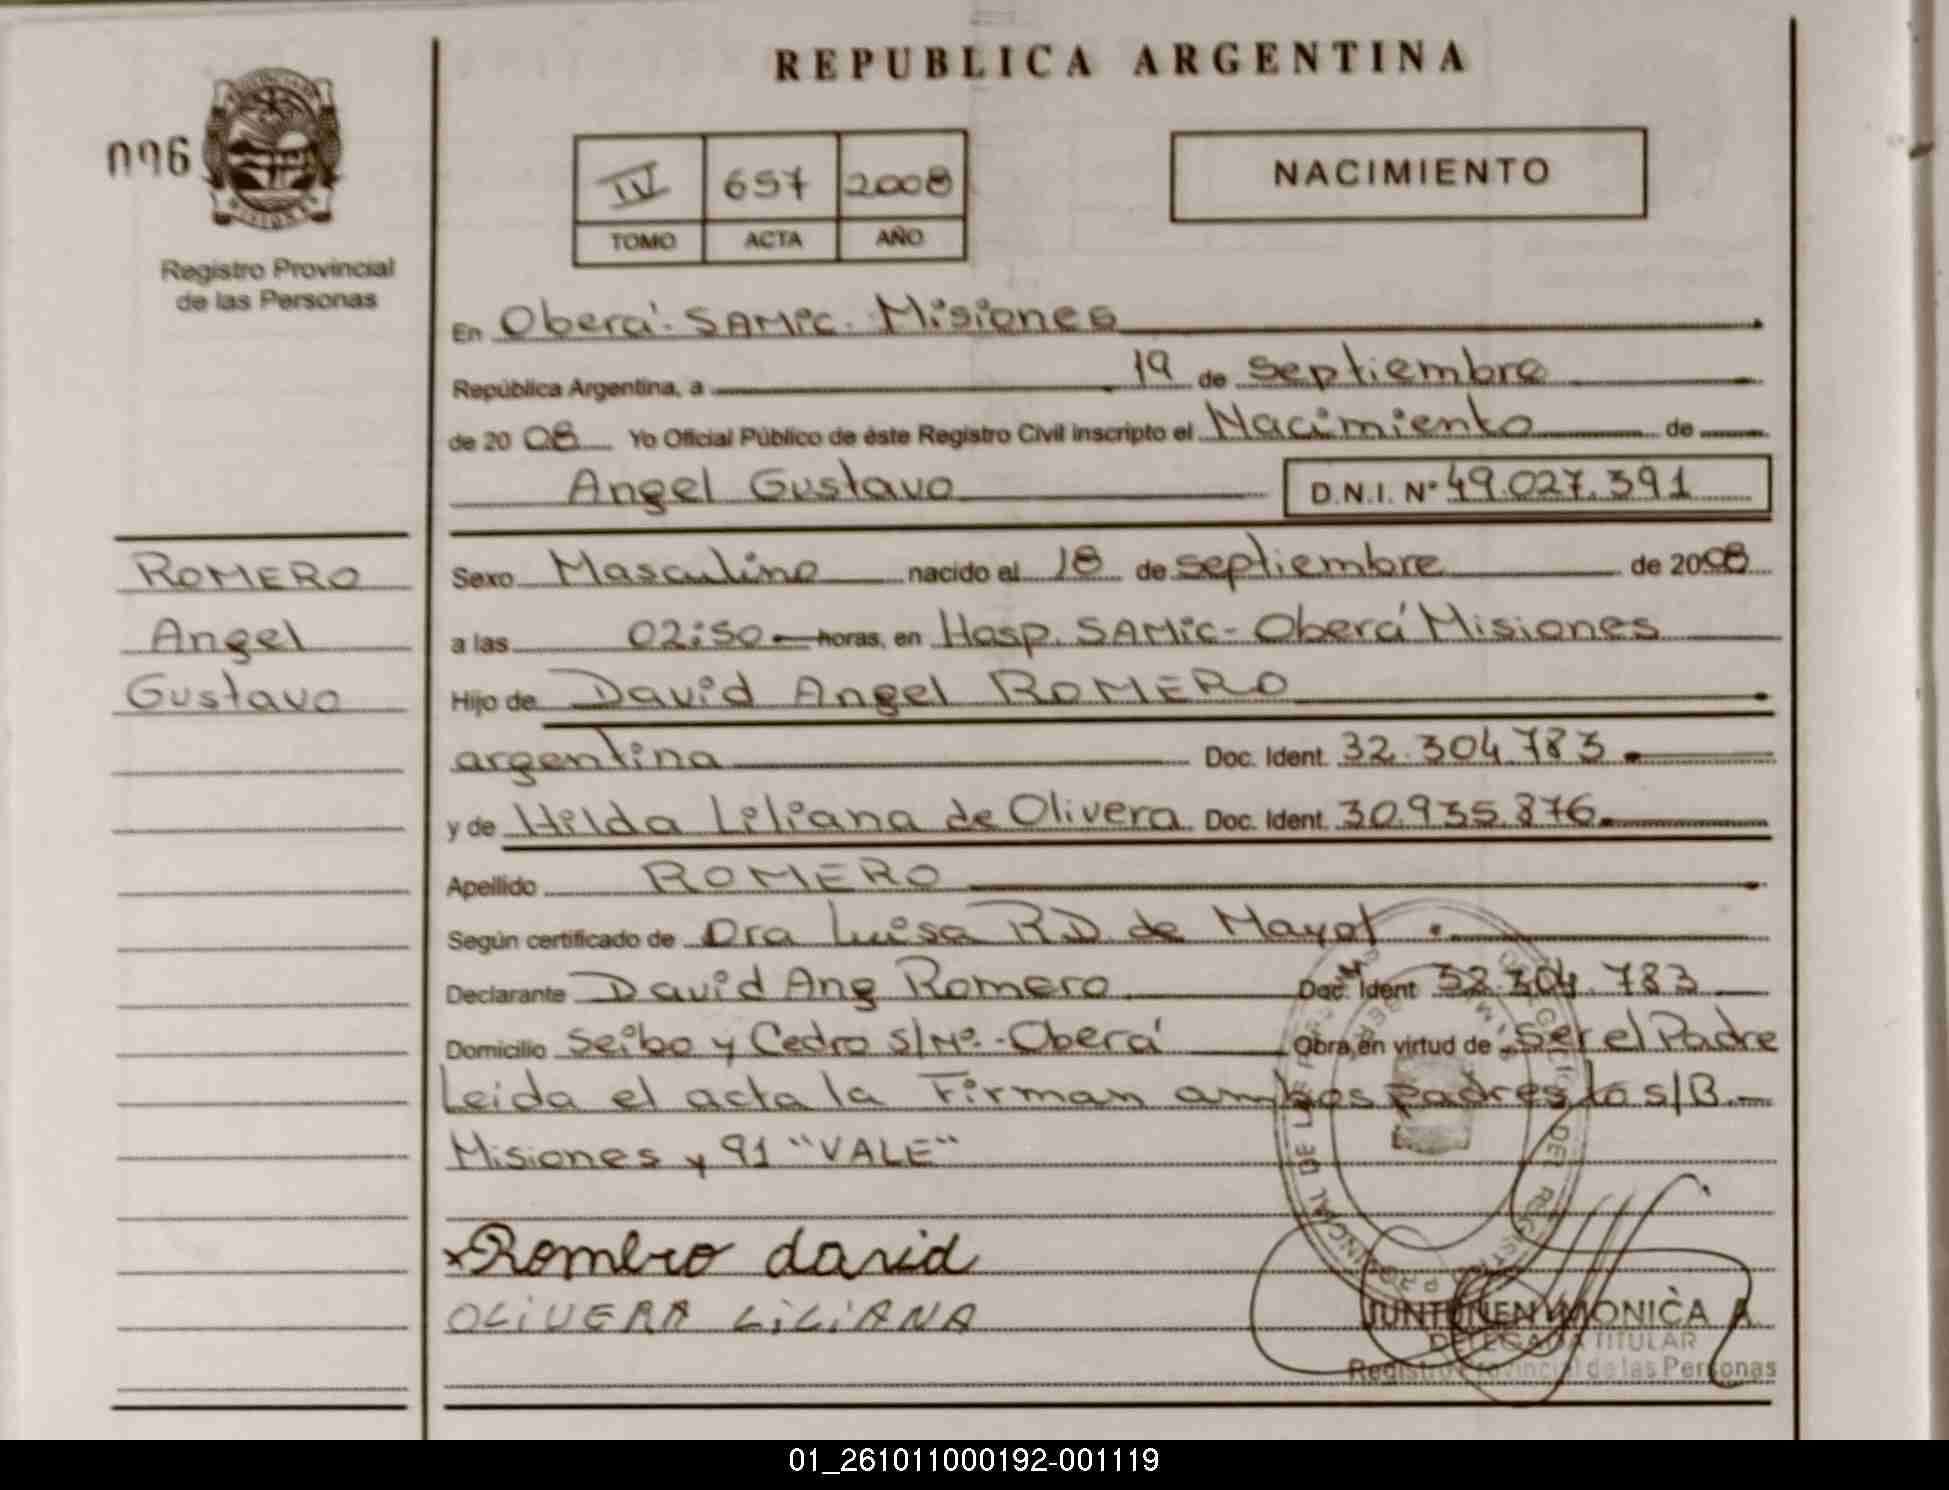 REPUBLICA ARGENTINA
096
Registro Provincial
de las Personas
IV 657 2008
TOMO ACTA AÑO
NACIMIENTO
En Oberá. SAMic. Misiones
República Argentina, a 19 de septiembre
de 2008 Yo Oficial Público de éste Registro Civil inscripto el Nacimiento de
Angel Gustavo D.N.I. Nº 49.027.391
ROMERO
Angel
Gustavo
Sexo Masculino nacido el 18 de septiembre de 2008
a las 02:50 horas, en Hosp. SAMic - Oberá Misiones
Hijo de David Angel ROMERO
argentina Doc. Ident. 32.304.783
y de Hilda Liliana de Olivera Doc. Ident. 30.935.876
Apellido ROMERO
Según certificado de Dra Luisa R.D. de Mayol
Declarante David Ang Romero Doc. Ident 32.304.783
Domicilio Seibo y Cedro s/Nº - Oberá Obra en virtud de ser el Padre
Leida el acta la Firman ambos padres to s/B
Misiones y 91 "VALE"
x Romero david
OLIVERA LILIANA
JUNTUNEN MONICA A
DELEGADA TITULAR
Registro Provincial de las Personas
01_261011000192-001119